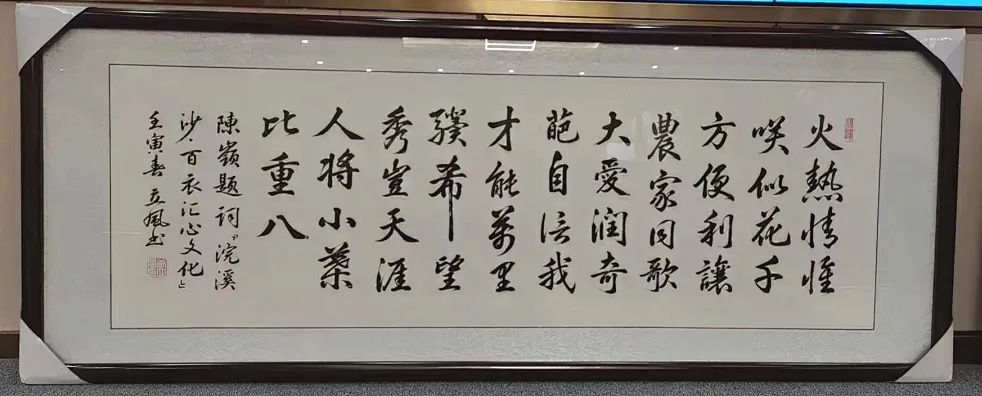 火熱情懷
咲似花千
方便利讓
農家同歌
大愛润奇
葩自信我
才能萬里
驥希望
秀豈天涯
人将小葉
比重八
陳嶺題詞“浣溪
沙·百农汇心文化”
壬寅春 立風书